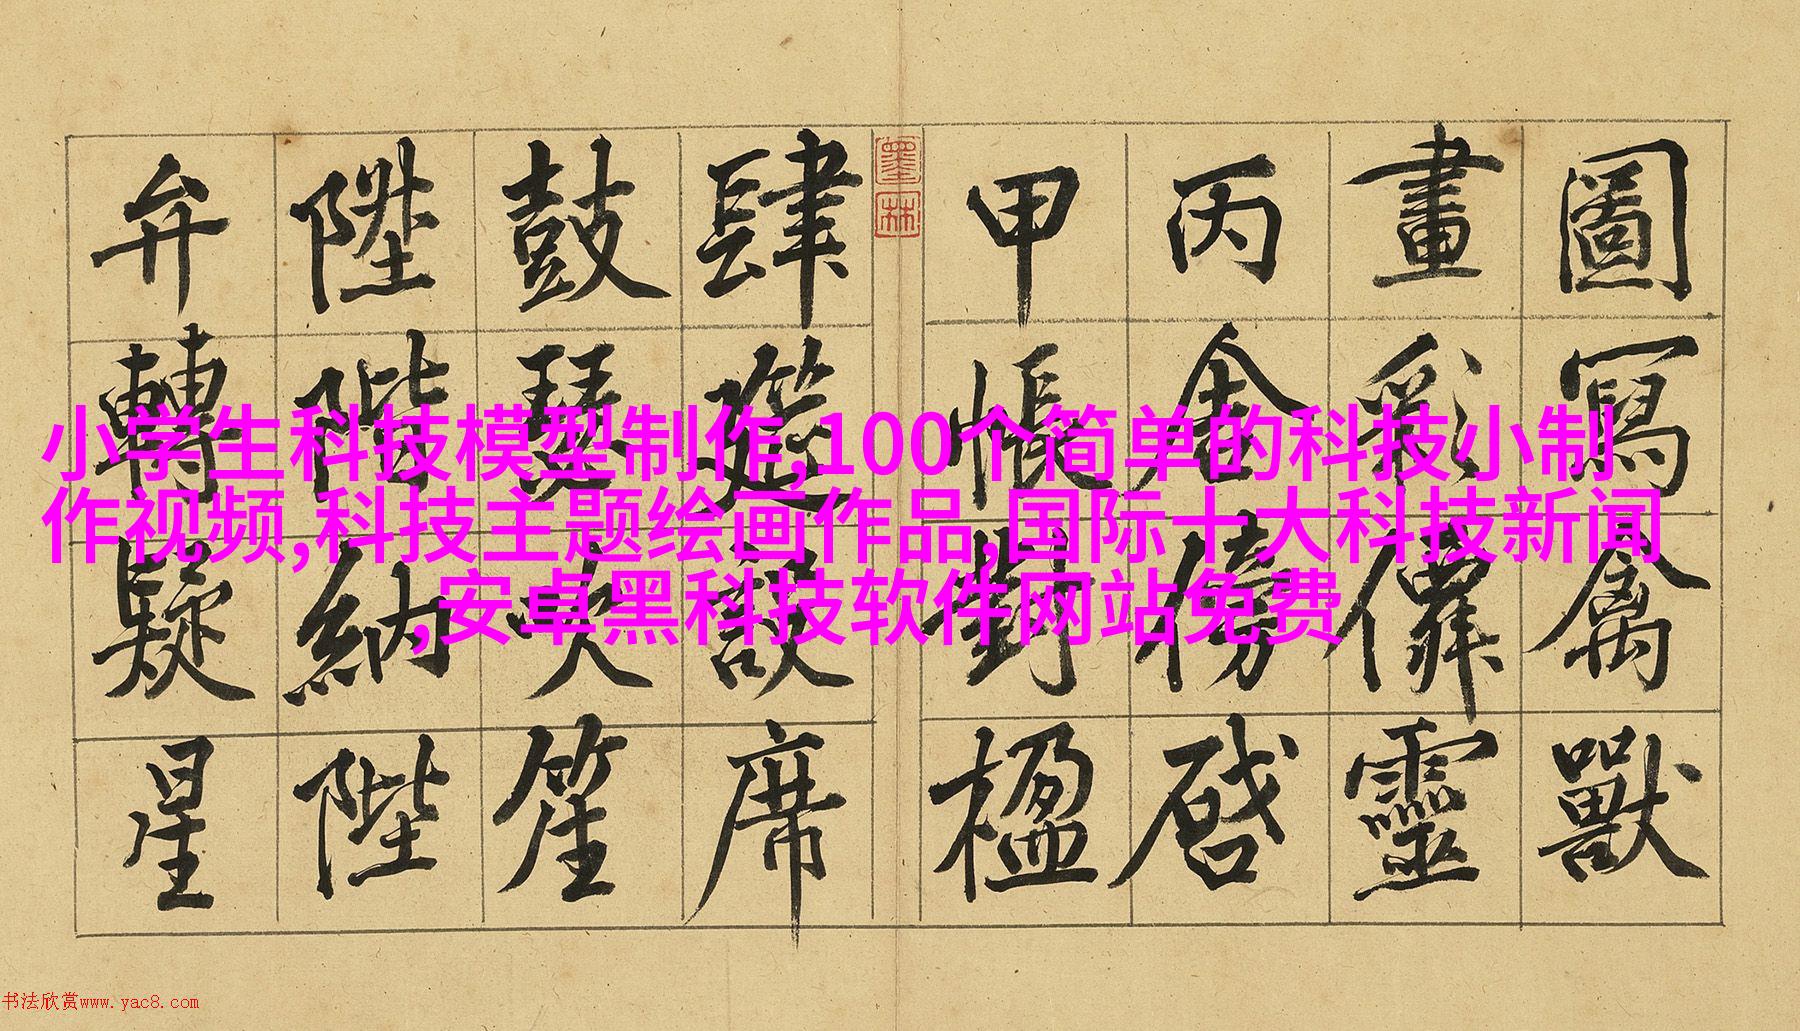 圖寫禽獸
畫彩僊靈
丙舍傍啓
甲帳對楹
墨林
肆筵設席
鼓瑟吹笙
陞階納陛
弁轉疑星
小学生科技模型制作,100个简单的科技小制
作视频,科技主题绘画作品,国际十大科技新闻
,安卓黑科技软件网站免费
书法欣赏www.yac8.com